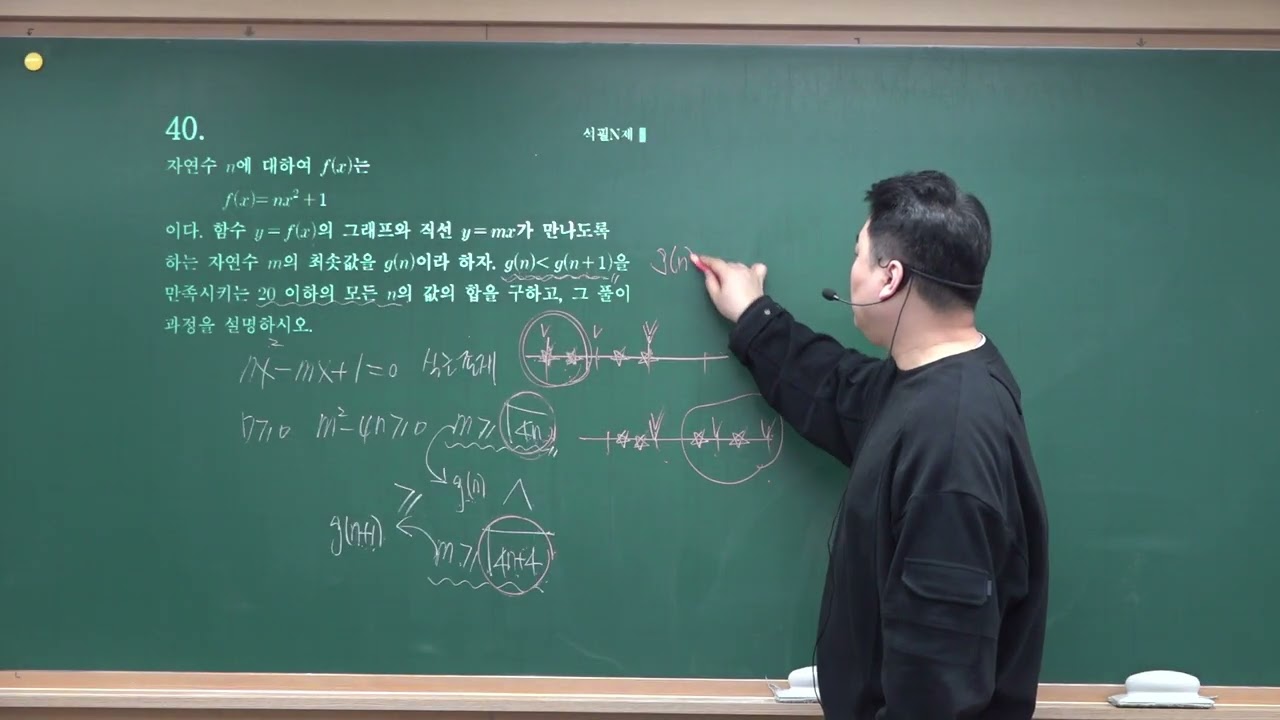 40.
식필N제
자연수 n에 대하여 f(x)는
f(x)=nx²+1
이다. 함수 y=f(x)의 그래프와 직선 y=mx가 만나도록
하는 자연수 m의 최솟값을 g(n)이라 하자. g(n)<g(n+1)을
만족시키는 20 이하의 모든 n의 값의 합을 구하고, 그 풀이
과정을 설명하시오.
g(n)
nx²-mx+1=0 실근존재
D≥0 m²-4n≥0 m≥√4n
g(n) ∧
≥
g(n+1)
m≥√4n+4